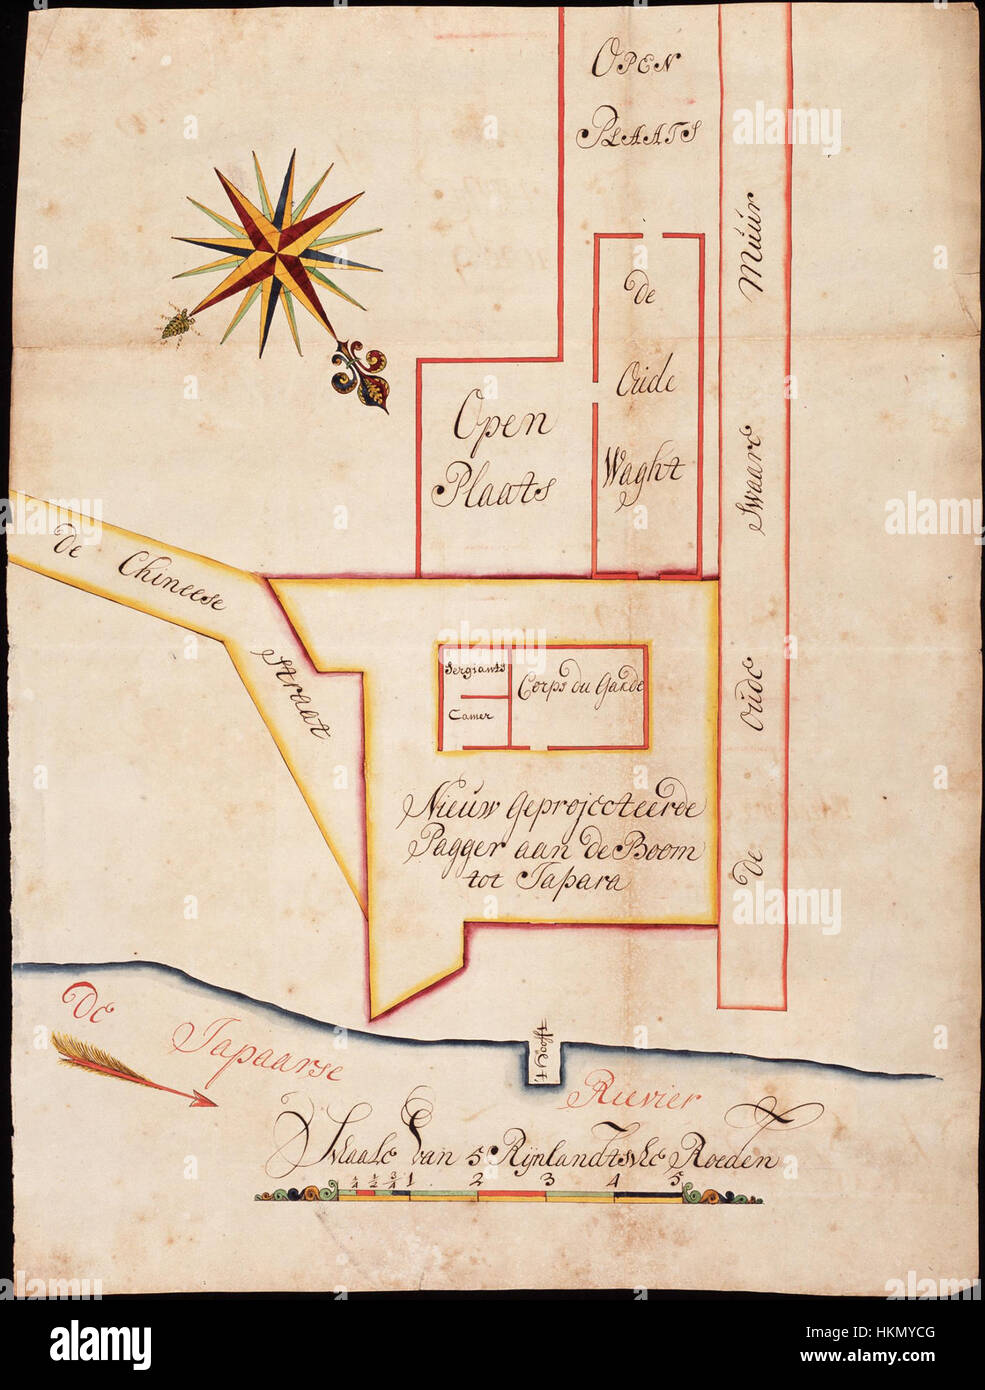 OPEN
PLAATS
de
Oude
Waght
Open
Plaats
De Oude Swaare Muur
De Chineese
Straat
Sergiants
Camer
Corps du Garde
Nieuw Geprojecteerde
Pagger aan de Boom
tot Japara
't Hooft
De Japaarse Rievier
Schaale Van 5 Rijnlandtsche Roeden
1/4 1/2 3/4 1 2 3 4 5
alamy
Image ID: HKMYCG
www.alamy.com